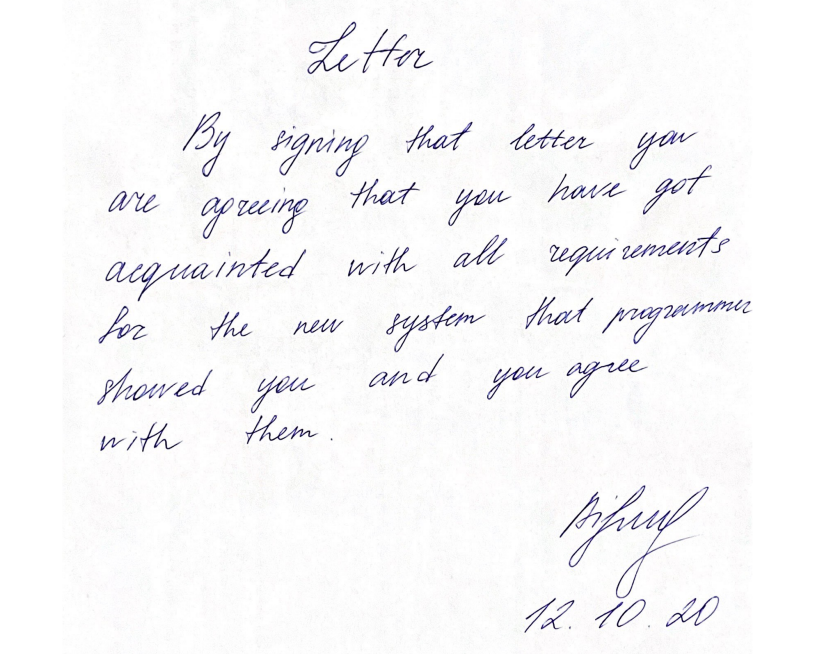 Letter
By signing that letter you
are agreeing that you have got
acquainted with all requirements
for the new system that programmer
showed you and you agree
with them.
12.10.20